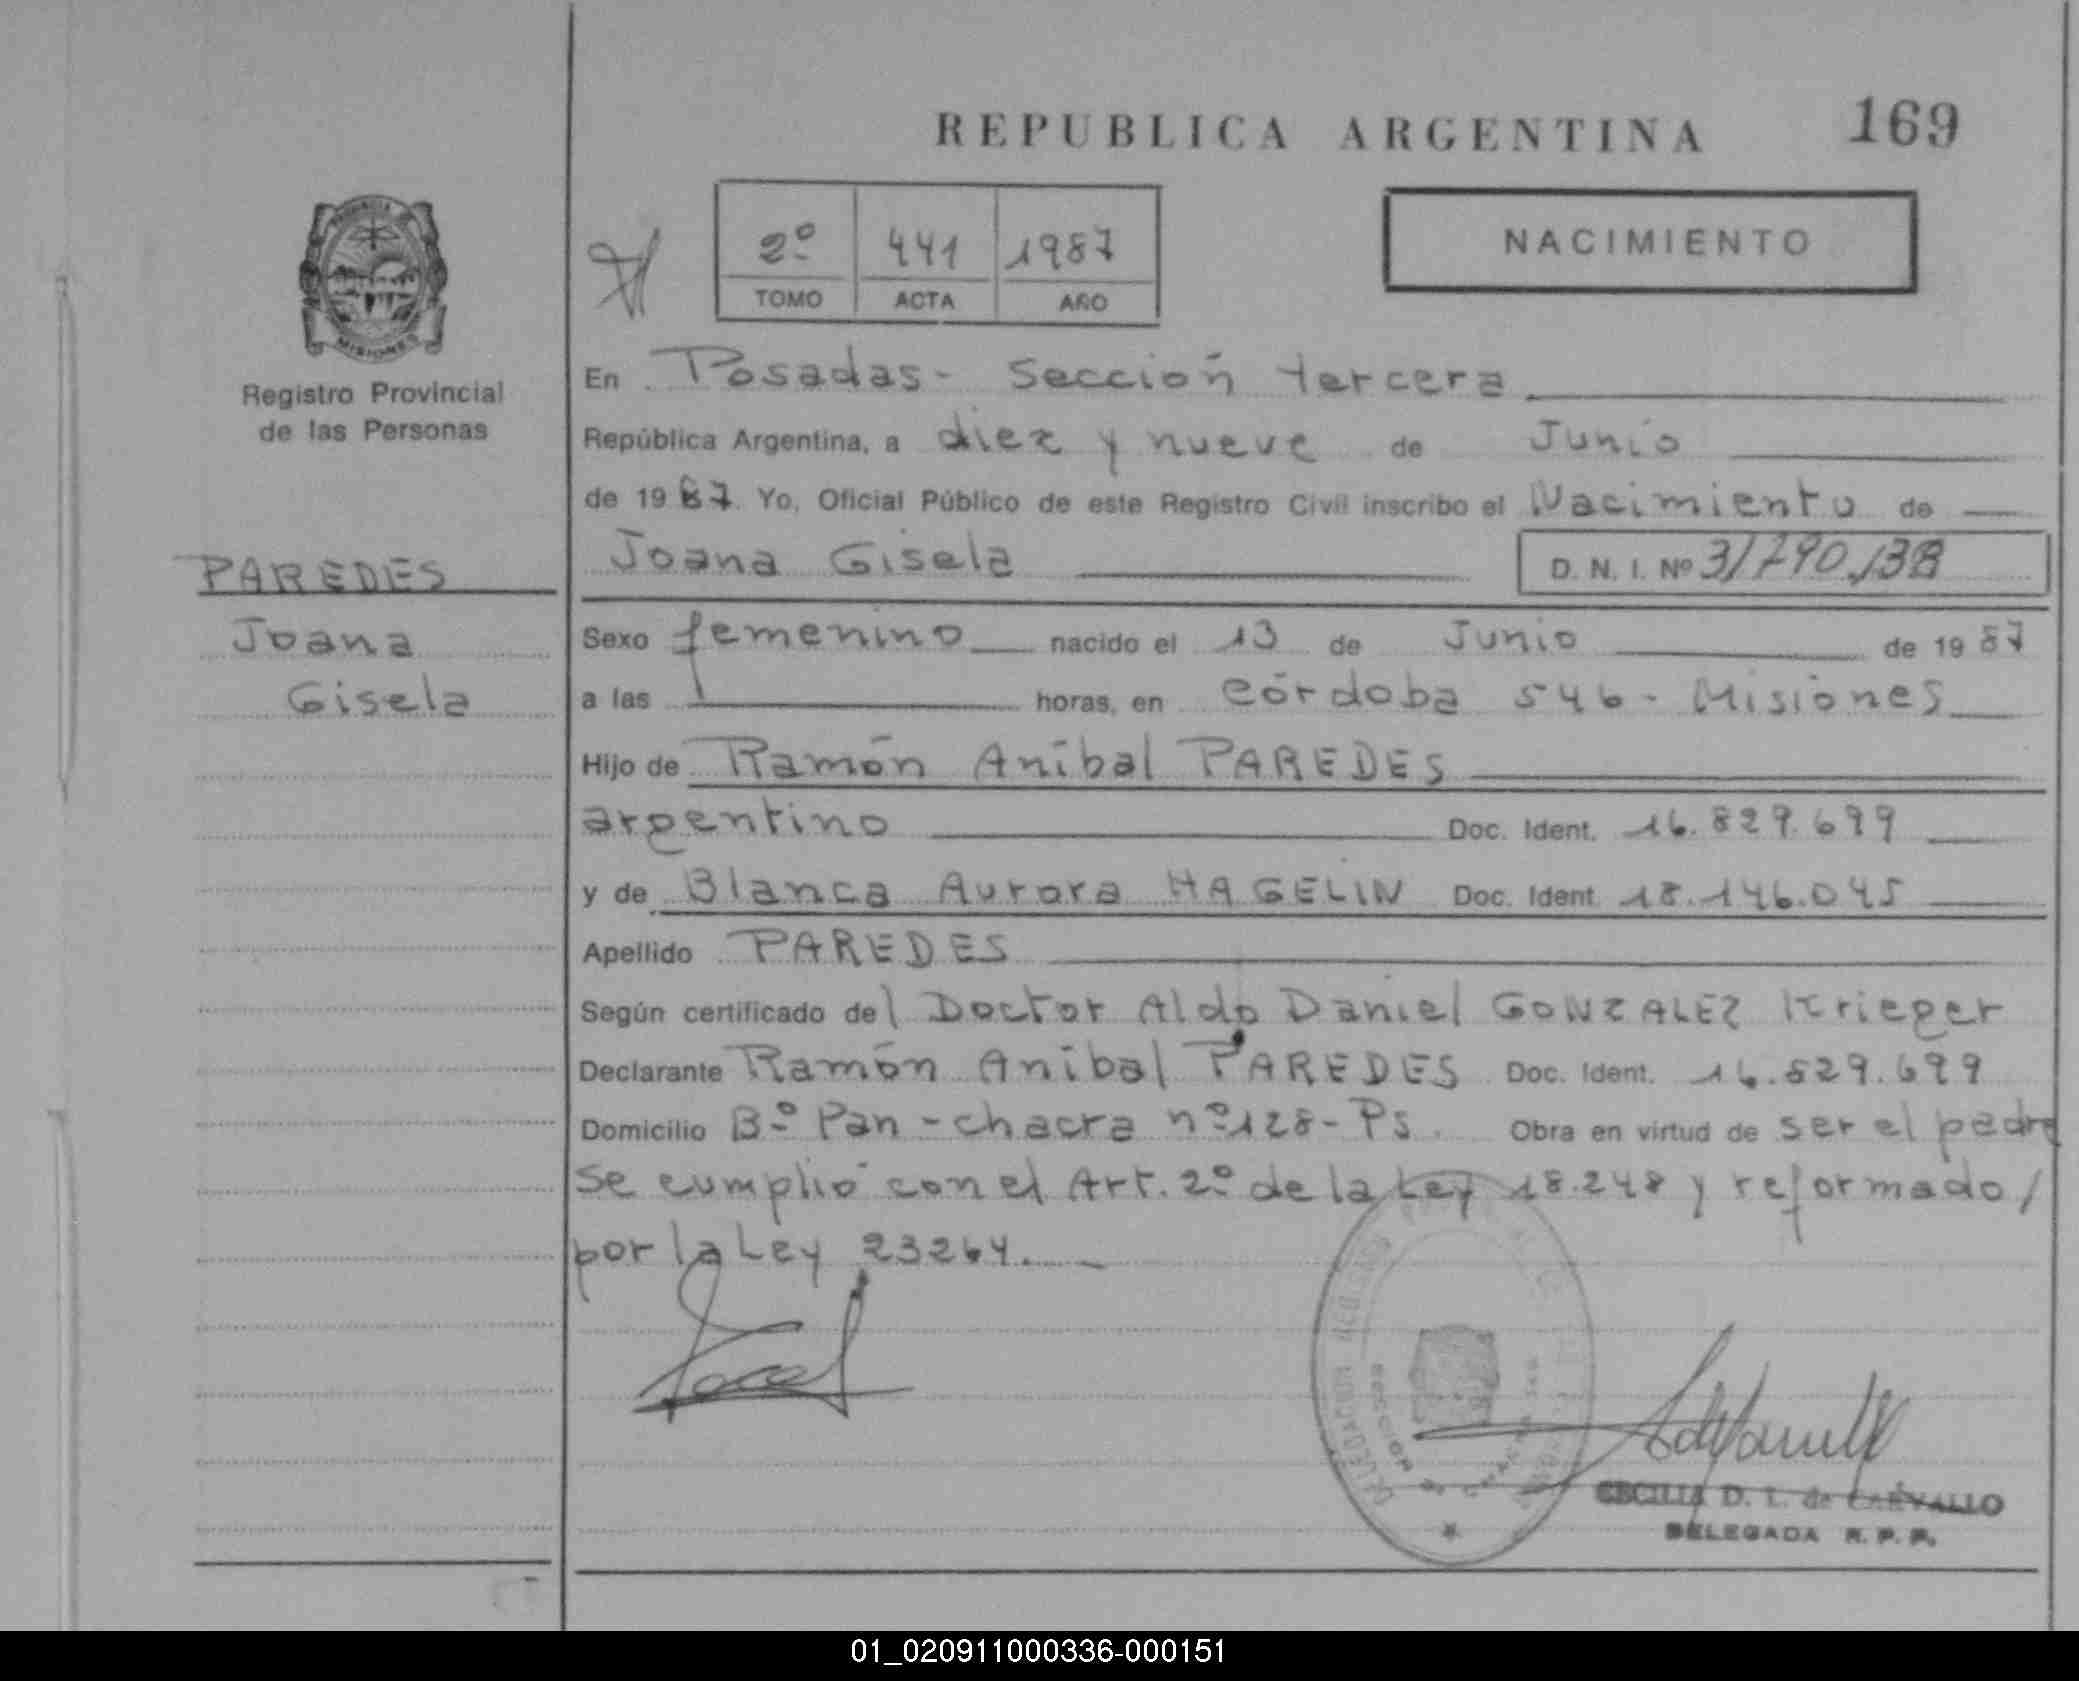 REPUBLICA ARGENTINA 169
2º 441 1987
TOMO ACTA AÑO
NACIMIENTO
PROVINCIA DE
MISIONES
Registro Provincial
de las Personas
PAREDES
Joana
Gisela
En Posadas - Sección tercera
República Argentina, a diez y nueve de Junio
de 1987. Yo, Oficial Público de este Registro Civil inscribo el Nacimiento de
Joana Gisela D. N. I. Nº
Sexo femenino nacido el 13 de Junio de 1987
a las horas, en Córdoba 546 - Misiones
Hijo de Ramón Aníbal PAREDES
argentino Doc. Ident. 16.829.699
y de Blanca Aurora HAGELIN Doc. Ident. 18.146.045
Apellido PAREDES
Según certificado del Doctor Aldo Daniel GONZALEZ Krieger
Declarante Ramón Aníbal PAREDES Doc. Ident. 16.829.699
Domicilio Bº Pan - chacra nº 128 - Ps. Obra en virtud de ser el padre
Se cumplió con el Art. 2º de la Ley 18.248 y reformado /
por la Ley 23264.
CECILIA D. L. de CARVALLO
DELEGADA R. P. P.
01_020911000336-000151